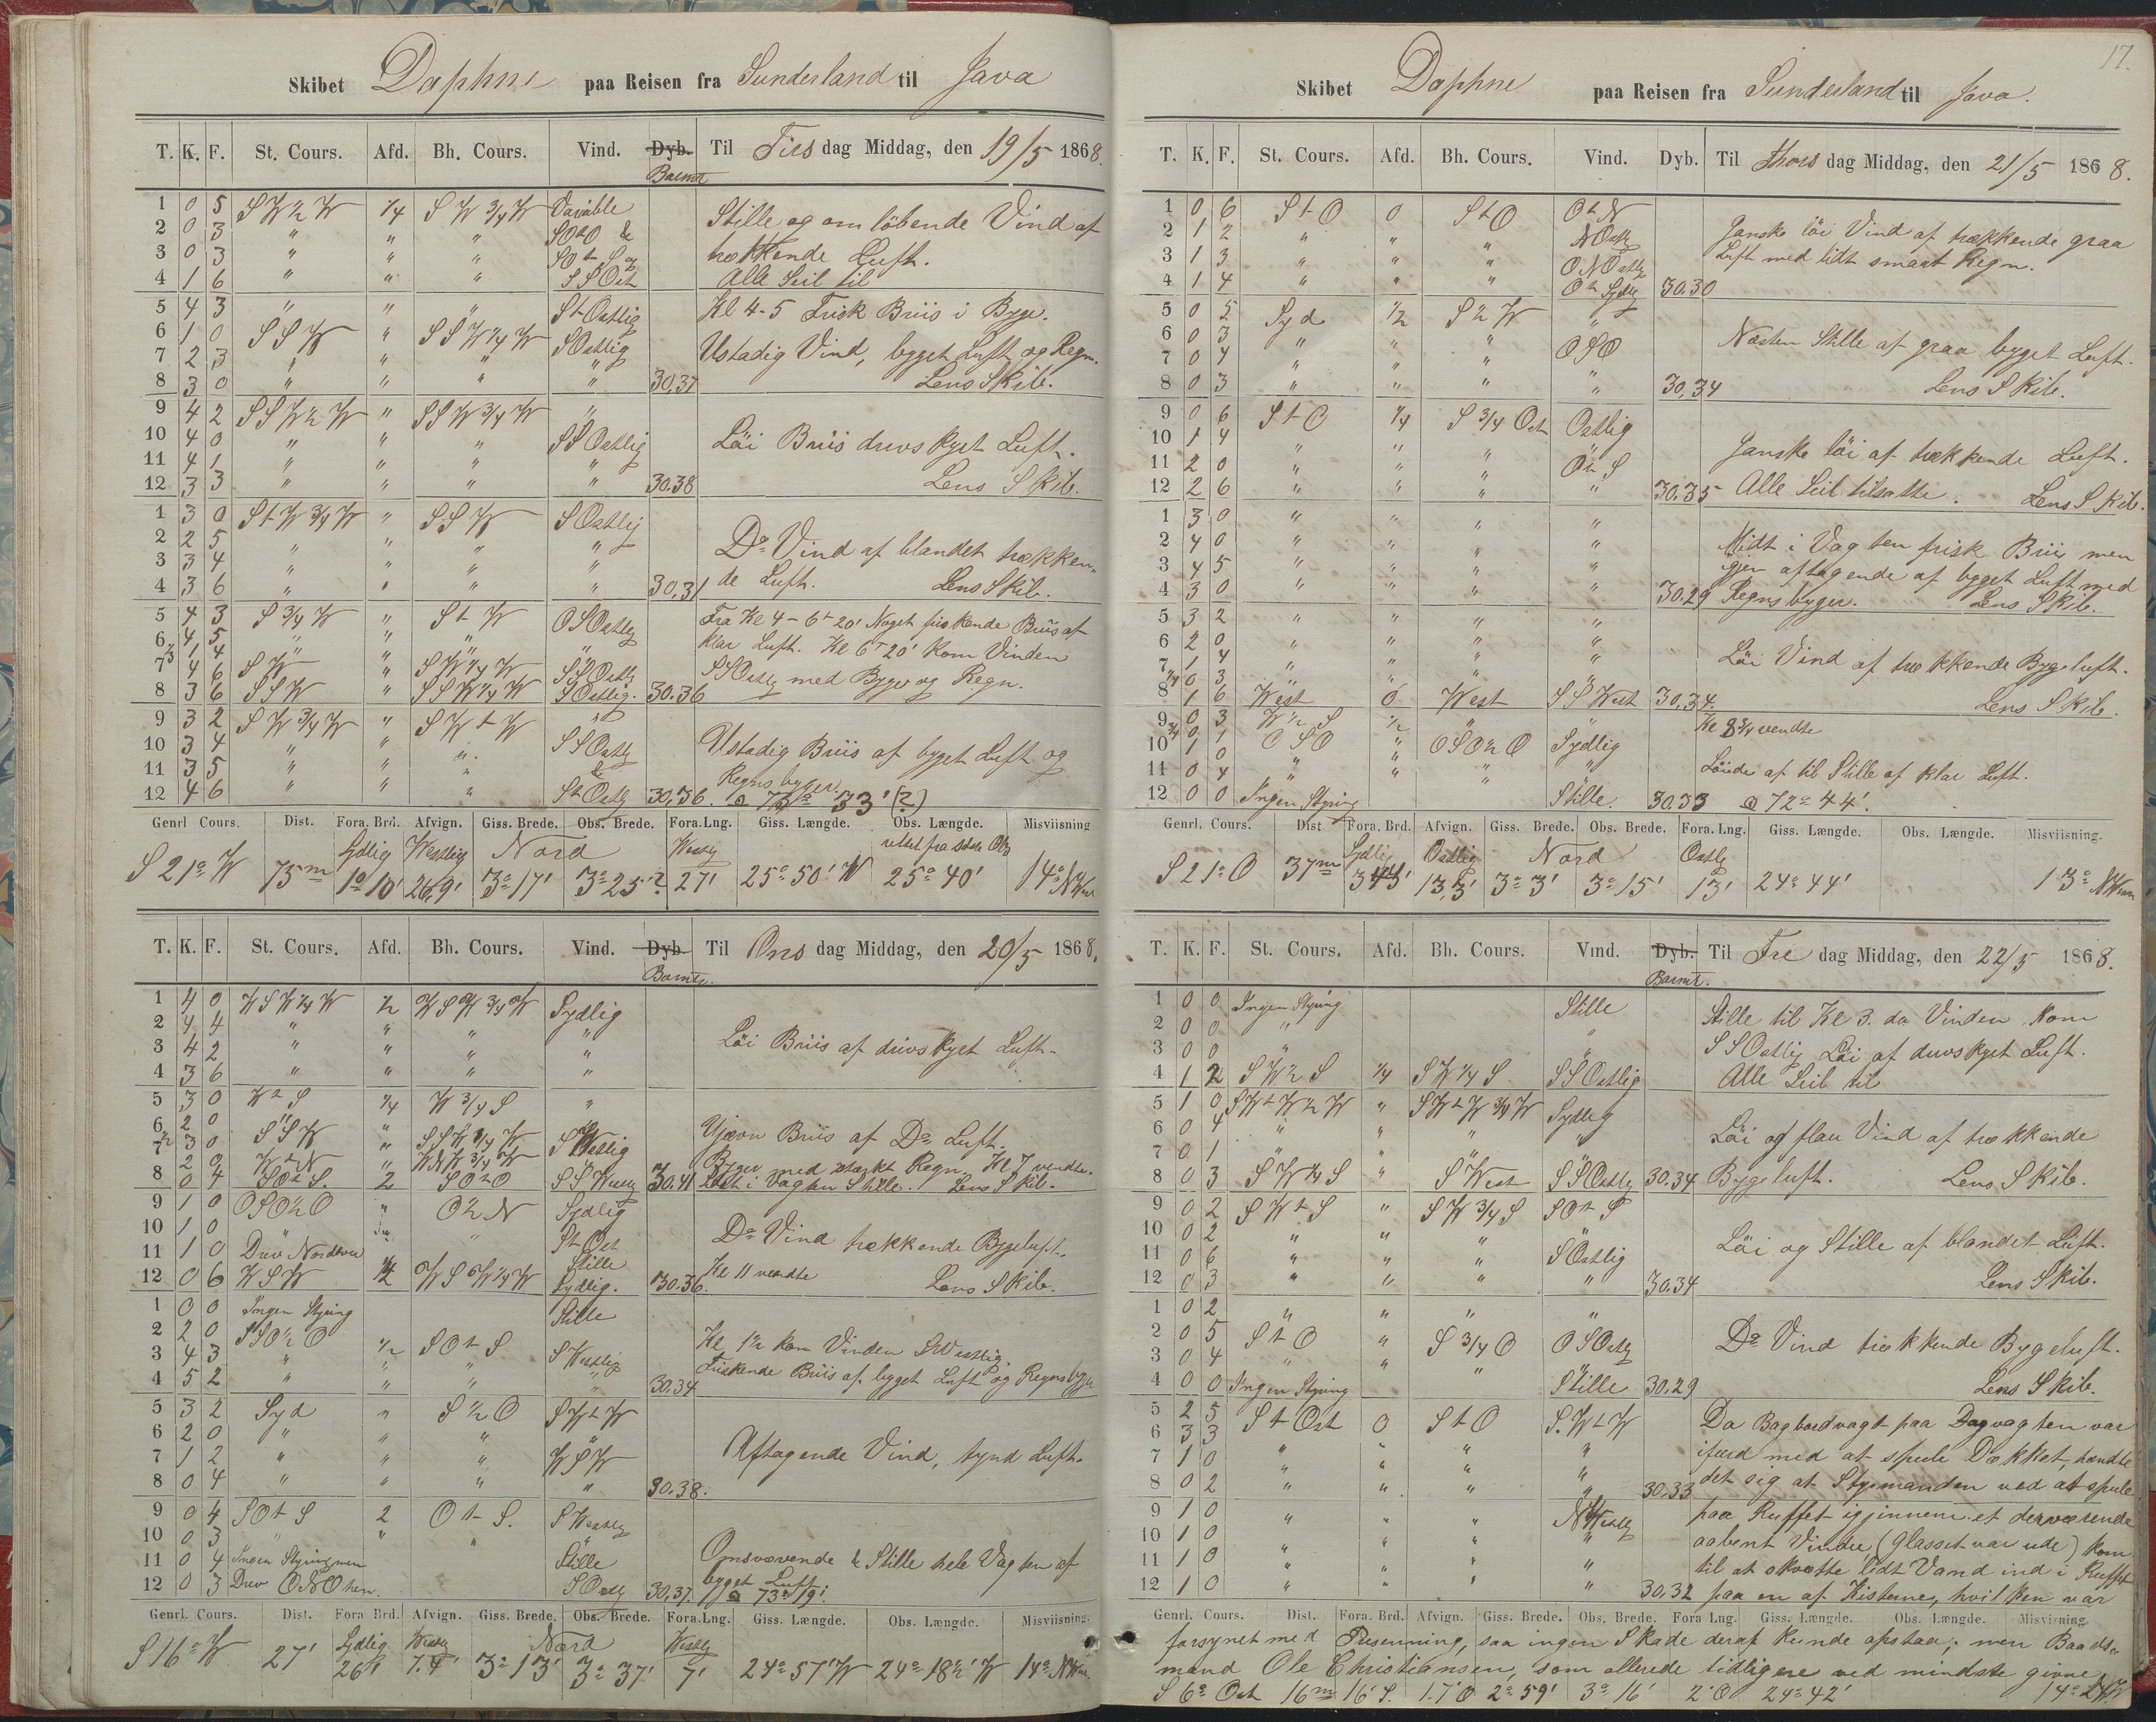 Skibet Daphne paa Reisen fra Sunderland til Java
T. K. F. St. Cours. Afd. Bh. Cours. Vind. Dyb. Til Tirsdag Middag, den 19/5 1868.
Barmtr
1 0 5 S W ½ W ¼ S W ¾ W Variable
2 0 3 " " " SOtO &
3 0 3 " " " SOtS og
4 1 6 " " " SSOst
Stille og om löbende Vind af
trækkende Luft.
Alle Seil til
5 4 3 " " " StOstlig
6 1 0 S S W " S S W ¼ W SOstlig
7 2 3 " " " "
8 3 0 " " " " 30,37
Kl 4-5 Frisk Briis i Byge.
Ustadig Vind, byget Luft og Regn.
Lens Skib.
9 4 2 S S W ½ W " S S W ¾ W "
10 4 0 " " " SSOstlig
11 4 1 " " " "
12 3 3 " " " " 30.38
Löi Briis diuvskyet Luft.
Lens Skib.
1 3 0 S t W ¾ W " S S W SOstlig
2 2 5 " " " "
3 3 4 " " " "
4 3 6 " " " " 30,31
Do Vind af blandet trækken-
de Luft. Lens Skib.
5 4 3 S ¾ W " S t W OSOstlig
6 4 5 " " "
1 4
7 4 6 S W " S W ¼ W SSOstlig
8 3 6 S S W " S S W ¼ W SOstlig. 30.36
Fra Kl 4 - 6 t 20' Noget friskende Briis af
klar Luft. Kl 6 t 20' kom Vinden
SSOstlig med Byger og Regn.
9 3 2 S W ¾ W " S W t W "
10 3 4 " " " SSOstlig
11 3 5 " " " &
12 4 6 " " " StOstlig 30,36.
Ustadig Briis af byget Luft og
Regnsbyger.
73° 33' (?)
Genrl Cours. Dist. Fora. Brd. Afvign. Giss. Brede. Obs. Brede. Fora.Lng. Giss. Længde. Obs. Længde. Misviisning
Sydlig Westlig Nord Westlig rettet fra sidste Obs
S 21° W 75 m 1° 10' 26,9' 3° 17' 3° 25 ? 27' 25° 50' W 25° 40' 14° NW
T. K. F. St. Cours. Afd. Bh. Cours. Vind. Dyb. Til Onsdag Middag, den 20/5 1868.
Barmtr.
1 4 0 W S W ¼ W ½ W S W ¾ W Sydlig
2 4 4 " " " "
3 4 2 " " " "
4 3 6 " " " "
Löi Briis af diuvskyet Luft.
5 3 0 W ½ S ¼ W ¾ S "
6 2 0 " " "
7 3 0 S S W " S S W ¼ W SWestlig
2 0 W t N " W N W ¾ W
8 0 4 S O t S. 2 S O t O SSWestlig 30.41
Ujævn Briis af Do Luft.
Byger med stærkt Regn. Kl 7 vendte.
Sidst i Vagten Stille. Lens Skib.
9 1 0 O S O ½ O " O ½ N Sydlig
10 1 0 " " StOst
11 1 0 Drev Nordover Stille
12 0 6 W S W ½ W S W ¼ W Sydlig. 30.36.
Do Vind trækkende Bygeluft.
Kl 11 vendte Lens Skib.
1 0 0 Ingen Styring Stille
2 2 0 S S O ½ O
3 4 3 " ½ S O t S SWestlig
4 5 2 " " " " 30.34
Kl 1½ kom Vinden SWestlig.
Friskende Briis af byget Luft og Regnsbyger
5 3 2 Syd " S ½ O S W t W
6 2 0 " " " "
7 1 2 " " " W S W
8 0 4 " " " " 30.38.
Aftagende Vind, tynd Luft.
9 0 4 S O t S 2 O t S. SWestlig
10 0 3 " " " "
11 0 4 Ingen Styring men Stille
12 0 3 Drev O N O hen. SOstlig 30,37.
Omsvævende & Stille hele Vagten af
byget Luft.
73° 19'.
Genrl. Cours. Dist. Fora Brd. Afvign. Giss. Brede. Obs. Brede. Fora.Lng. Giss. Længde. Obs. Længde. Misviisning.
Sydlig Westlig Nord Westlig
S 16° W 27' 26' 7.4' 3° 13' 3° 37' 7' 24° 57' W 24° 18½' W 14° NW
17.
Skibet Daphne paa Reisen fra Sunderland til Java.
T. K. F. St. Cours. Afd. Bh. Cours. Vind. Dyb. Til Thorsdag Middag, den 21/5 1868.
1 0 6 S t O 0 S t O O t N
2 1 2 " " " NOstlig
3 1 3 " " " ONOstlig
4 1 4 " " " O t Sydlig 30.30
Ganske löi Vind af trækkende graa
Luft med lidt smaat Regn.
5 0 5 Syd ½ S ½ W "
6 0 3 " " "
7 0 4 " " " O S O
8 0 3 " " " " 30,34
Næsten Stille af graa byget Luft.
Lens Skib.
9 0 6 S t O ¼ S ¾ Ost Ostlig
10 1 4 " " " "
11 2 0 " " " O t S
12 2 6 " " " " 30.35
Ganske löi af trækkende Luft.
Alle Seil tilsatte. Lens Skib.
1 3 0 " " " "
2 4 0 " " " "
3 4 5 " " " "
4 3 0 " " " " 30.29
Midt i Vagten frisk Briis men
igjen aftagende af byget Luft med
Regnsbyger. Lens Skib.
5 3 2 " " " "
6 2 0 " " " "
7 1 4 " " " "
¼ 0 3 " " " "
8 1 6 West 0 West SSWest 30.34.
Löi Vind af trækkende Bygeluft.
Lens Skib.
9 0 3 W ½ S ½ " "
¾ 0 1 O S O " O S O ½ O Sydlig
10 1 0 " " "
11 0 4 " " " "
12 0 0 Ingen Styring Stille. 30.33
Kl 8¾ vendte
Löiede af til Stille af klar Luft.
72° 44'.
Genrl. Cours. Dist Fora. Brd. Afvign. Giss. Brede. Obs. Brede. Fora. Lng. Giss. Længde. Obs. Længde. Misviisning.
Sydlig Ostlig Nord Ostlig
S 21° O 37 m 13,3' 3° 3' 3° 15' 13' 24° 44' 13° NW
T. K. F. St. Cours. Afd. Bh. Cours. Vind. Dyb. Til Fredag Middag, den 22/5 1868.
Barmtr.
1 0 0 Ingen Styring Stille
2 0 0 " "
3 0 0 " "
4 1 2 S W ½ S ¼ S W ¼ S SSOstlig
Stille til Kl 3. da Vinden kom
SSOstlig Löi af diuvskyet Luft.
Alle Seil til
5 1 0 S W t W ½ W " S W t W ¾ W Sydlig
6 0 4 " " " "
7 0 1 " " "
8 0 3 S W ¼ S " S West SSOstlig 30.34
Löi og flau Vind af trækkende
Bygeluft. Lens Skib.
9 0 2 S W t S " S W ¾ S S O t S
10 0 2 " " " "
11 0 6 " " " SOstlig
12 0 3 " " " " 30.34
Löi og Stille af blandet Luft.
Lens Skib.
1 0 2 " " " "
2 0 5 S t O " S ¾ O OSOstlig
3 0 4 " " " "
4 0 0 Ingen Styring Stille 30.29
Do Vind trækkende Bygeluft.
Lens Skib.
5 2 5 S t Ost 0 S t O S.W t W
6 3 3 " " " "
7 1 0 " " " "
8 0 2 " " " " 30,33
9 1 0 " " " NWestlig
10 1 0 " " " "
11 1 0 " " " "
12 1 0 " " " " 30,32
Da Bagbordvagt paa Dagvagten var
ifærd med at spule Dækket, hændte
det sig at Styrmanden ved at spule
paa Ruffet igjennem et derværende
aabent Vindue (Glasset var ude) kom
til at skvætte lidt Vand ind i Ruffet
paa en af Kisterne, hvilken var
Genrl. Cours. Dist. Fora. Brd. Afvign. Giss. Brede. Obs. Brede. Fora Lng. Giss. Længde. Obs. Længde. Misvisning
forsynet med Presenning, saa ingen Skade deraf kunde opstaa; men Baads-
mand Ole Christiansen, som allerede tidligere ved mindste givne
S 6° Ost 16 m 16' S. 1.7' O 2° 59' 3° 16' 2' O 24° 42' 14°